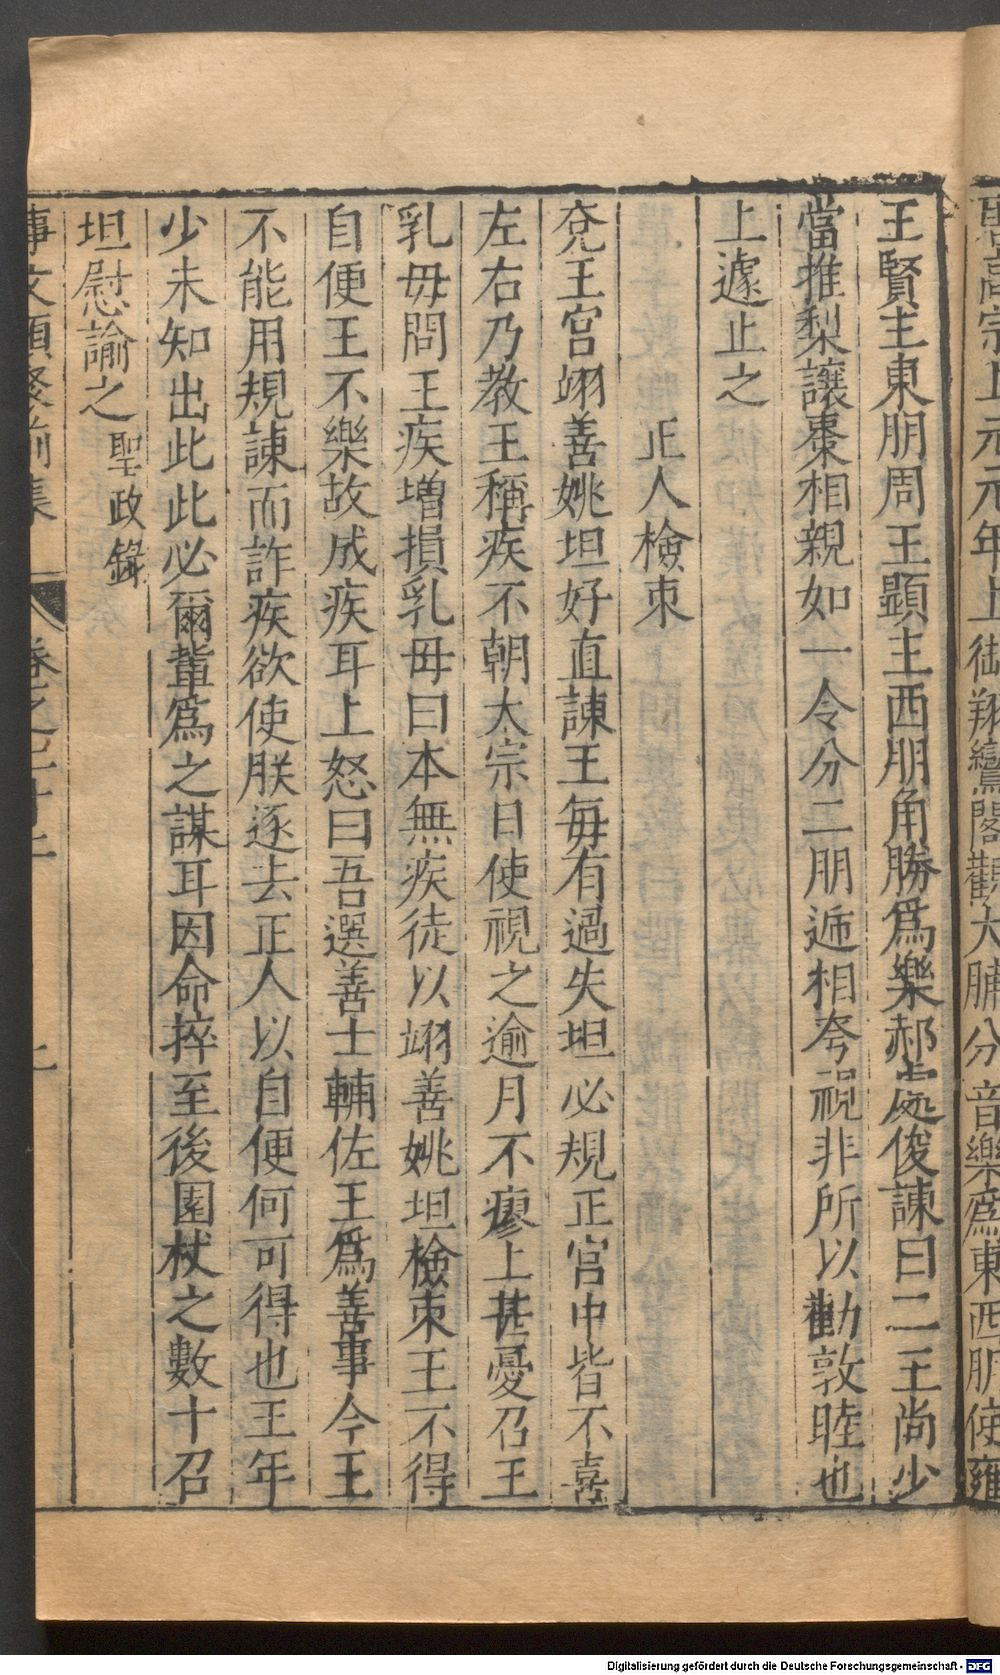 高宗上元元年上御翔鸞閣觀大酺分音樂爲東西朋使雍
王賢主東朋周王顯主西朋角勝爲樂郝處俊諫曰二王尚少
當推梨讓棗相親如一令分二朋逓相夸視非所以勸敦睦也
上遽止之
正人檢束
兖王宮翊善姚坦好直諫王毎有過失坦必規正宮中皆不喜
左右乃教王稱疾不朝太宗日使視之逾月不瘳上甚憂召王
乳毋問王疾増損乳毋曰本無疾徒以翊善姚坦檢束王不得
自便王不樂故成疾耳上怒曰吾選善士輔佐王爲善事今王
不能用規諫而詐疾欲使朕逐去正人以自便何可得也王年
少未知出此此必爾輩爲之謀耳因命捽至後園杖之數十召
坦慰諭之 聖政錄
事文類聚前集 卷之二十二 七
Digitalisierung gefördert durch die Deutsche Forschungsgemeinschaft - DFG